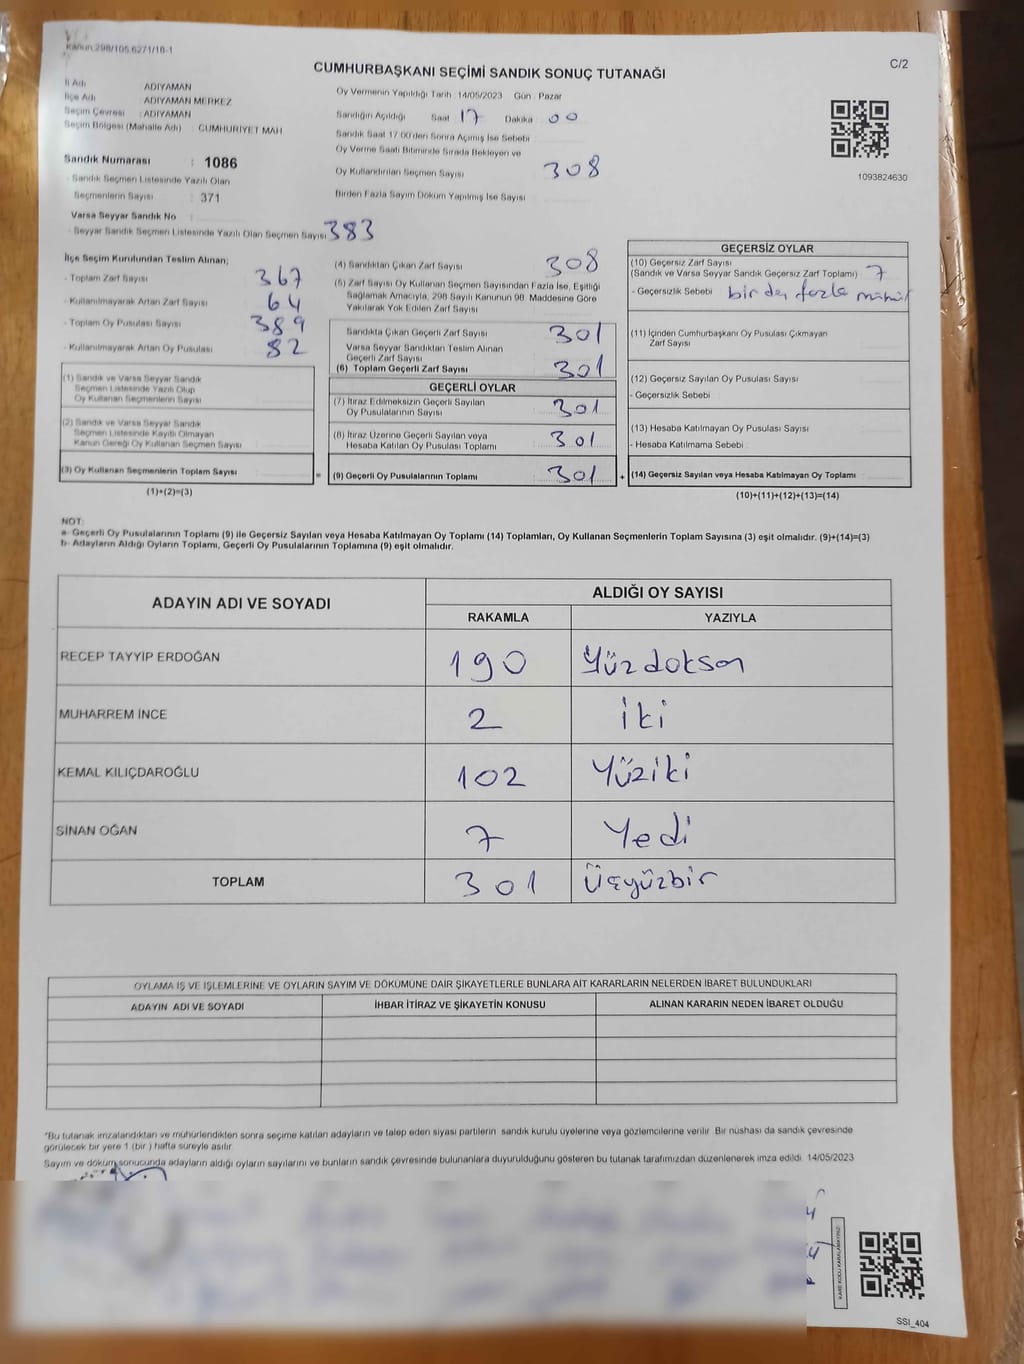 Kanun 298/105,6271/18-1
C/2
CUMHURBAŞKANI SEÇİMİ SANDIK SONUÇ TUTANAĞI
İl Adı : ADIYAMAN
İlçe Adı : ADIYAMAN MERKEZ
Seçim Çevresi : ADIYAMAN
Seçim Bölgesi (Mahalle Adı) : CUMHURİYET MAH
Sandık Numarası : 1086
- Sandık Seçmen Listesinde Yazılı Olan
Seçmenlerin Sayısı : 371
Varsa Seyyar Sandık No
- Seyyar Sandık Seçmen Listesinde Yazılı Olan Seçmen Sayısı 383
Oy Vermenin Yapıldığı Tarih 14/05/2023 Gün Pazar
Sandığın Açıldığı Saat 17 Dakika 00
Sandık Saat 17:00'den Sonra Açılmış İse Sebebi
Oy Verme Saati Bitiminde Sırada Bekleyen ve
Oy Kullandırılan Seçmen Sayısı 308
Birden Fazla Sayım Döküm Yapılmış İse Sayısı
1093824630
İlçe Seçim Kurulundan Teslim Alınan;
- Toplam Zarf Sayısı 367
- Kullanılmayarak Artan Zarf Sayısı 64
- Toplam Oy Pusulası Sayısı 389
- Kullanılmayarak Artan Oy Pusulası 82
(1) Sandık ve Varsa Seyyar Sandık
Seçmen Listesinde Yazılı Olup
Oy Kullanan Seçmenlerin Sayısı
(2) Sandık ve Varsa Seyyar Sandık
Seçmen Listesinde Kayıtlı Olmayan
Kanun Gereği Oy Kullanan Seçmen Sayısı
(3) Oy Kullanan Seçmenlerin Toplam Sayısı =
(1)+(2)=(3)
(4) Sandıktan Çıkan Zarf Sayısı 308
(5) Zarf Sayısı Oy Kullanan Seçmen Sayısından Fazla İse, Eşitliği
Sağlamak Amacıyla, 298 Sayılı Kanunun 98. Maddesine Göre
Yakılarak Yok Edilen Zarf Sayısı
Sandıkta Çıkan Geçerli Zarf Sayısı 301
Varsa Seyyar Sandıktan Teslim Alınan
Geçerli Zarf Sayısı
(6) Toplam Geçerli Zarf Sayısı 301
GEÇERLİ OYLAR
(7) İtiraz Edilmeksizin Geçerli Sayılan
Oy Pusulalarının Sayısı 301
(8) İtiraz Üzerine Geçerli Sayılan veya
Hesaba Katılan Oy Pusulası Toplamı 301
(9) Geçerli Oy Pusulalarının Toplamı 301 +
GEÇERSİZ OYLAR
(10) Geçersiz Zarf Sayısı
(Sandık ve Varsa Seyyar Sandık Geçersiz Zarf Toplamı) 7
- Geçersizlik Sebebi birden fazla mühür
(11) İçinden Cumhurbaşkanı Oy Pusulası Çıkmayan
Zarf Sayısı
(12) Geçersiz Sayılan Oy Pusulası Sayısı
- Geçersizlik Sebebi
(13) Hesaba Katılmayan Oy Pusulası Sayısı
- Hesaba Katılmama Sebebi
(14) Geçersiz Sayılan veya Hesaba Katılmayan Oy Toplamı
(10)+(11)+(12)+(13)=(14)
NOT:
a- Geçerli Oy Pusulalarının Toplamı (9) ile Geçersiz Sayılan veya Hesaba Katılmayan Oy Toplamı (14) Toplamları, Oy Kullanan Seçmenlerin Toplam Sayısına (3) eşit olmalıdır. (9)+(14)=(3)
b- Adayların Aldığı Oyların Toplamı, Geçerli Oy Pusulalarının Toplamına (9) eşit olmalıdır.
ADAYIN ADI VE SOYADI
ALDIĞI OY SAYISI
RAKAMLA YAZIYLA
RECEP TAYYİP ERDOĞAN 190 Yüzdoksan
MUHARREM İNCE 2 iki
KEMAL KILIÇDAROĞLU 102 Yüziki
SİNAN OĞAN 7 Yedi
TOPLAM 301 Üçyüzbir
OYLAMA İŞ VE İŞLEMLERİNE VE OYLARIN SAYIM VE DÖKÜMÜNE DAİR ŞİKAYETLERLE BUNLARA AİT KARARLARIN NELERDEN İBARET BULUNDUKLARI
ADAYIN ADI VE SOYADI İHBAR İTİRAZ VE ŞİKAYETİN KONUSU ALINAN KARARIN NEDEN İBARET OLDUĞU
*Bu tutanak imzalandıktan ve mühürlendikten sonra seçime katılan adayların ve talep eden siyasi partilerin sandık kurulu üyelerine veya gözlemcilerine verilir. Bir nüshası da sandık çevresinde
görülecek bir yere 1 (bir ) hafta süreyle asılır.
Sayım ve döküm sonucunda adayların aldığı oyların sayılarını ve bunların sandık çevresinde bulunanlara duyurulduğunu gösteren bu tutanak tarafımızdan düzenlenerek imza edildi. 14/05/2023
SSI_404